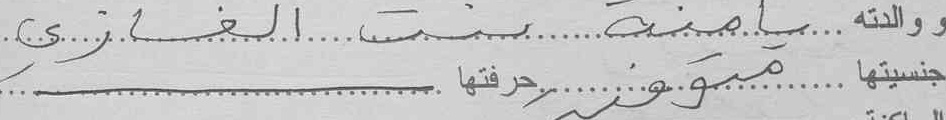 و والدته يامنة بنت الغازي
جنسيتها متوفية حرفتها